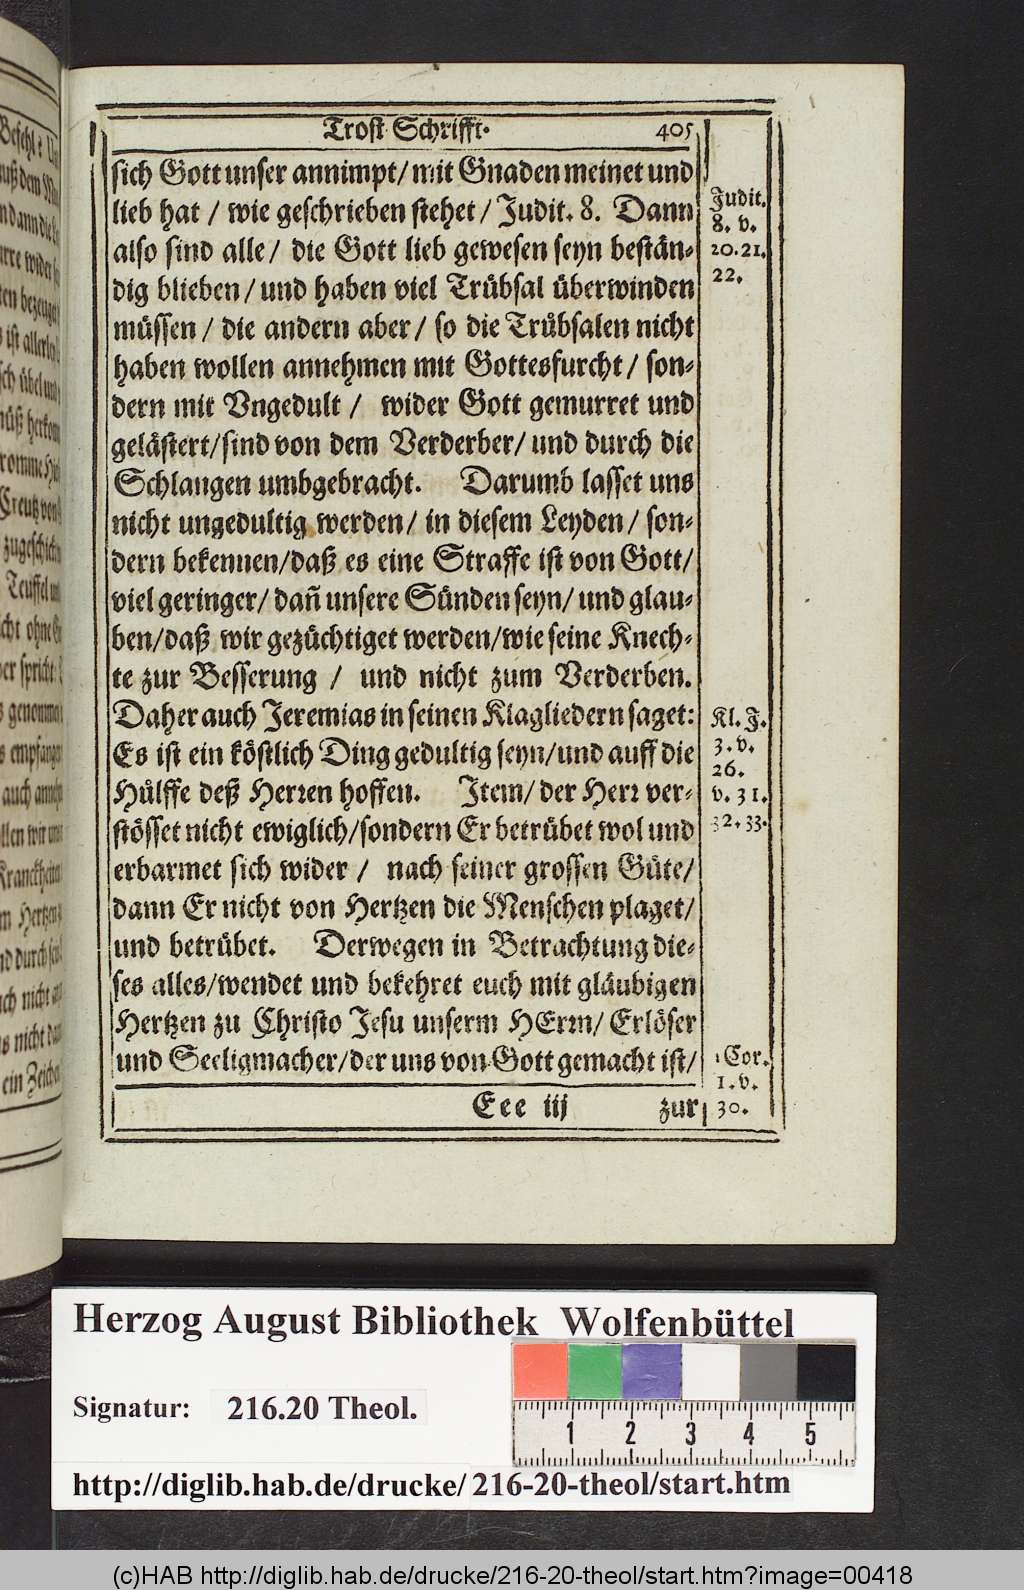 Trost Schrifft. 405
sich Gott unser annimpt/ mit Gnaden meinet und
lieb hat / wie geschrieben stehet / Judit. 8. Dann
also sind alle / die Gott lieb gewesen seyn bestän-
dig blieben / und haben viel Trübsal überwinden
müssen / die andern aber / so die Trübsalen nicht
haben wollen annehmen mit Gottesfurcht / son-
dern mit Vngedult / wider Gott gemurret und
gelästert/ sind von dem Verderber/ und durch die
Schlangen umbgebracht. Darumb lasset uns
nicht ungedultig werden / in diesem Leyden / son-
dern bekennen/daß es eine Straffe ist von Gott/
viel geringer/ dañ unsere Sünden seyn/ und glau-
ben/daß wir gezüchtiget werden/wie seine Knech-
te zur Besserung / und nicht zum Verderben.
Daher auch Jeremias in seinen Klagliedern saget:
Es ist ein köstlich Ding gedultig seyn/und auff die
Hülffe deß Herren hoffen. Item/ der Herr ver-
stösset nicht ewiglich/sondern Er betrübet wol und
erbarmet sich wider / nach seiner grossen Güte/
dann Er nicht von Hertzen die Menschen plaget/
und betrübet. Derwegen in Betrachtung die-
ses alles/wendet und bekehret euch mit gläubigen
Hertzen zu Christo Jesu unserm HErrn/ Erlöser
und Seeligmacher/der uns von Gott gemacht ist/
Eee iij zur
Judit.
8. v.
20.21.
22.
Kl. J.
3. v.
26.
v. 31.
32. 33.
1 Cor.
1. v.
30.
Herzog August Bibliothek Wolfenbüttel
Signatur: 216.20 Theol.
1 2 3 4 5
http://diglib.hab.de/drucke/ 216-20-theol/start.htm
(c)HAB http://diglib.hab.de/drucke/216-20-theol/start.htm?image=00418